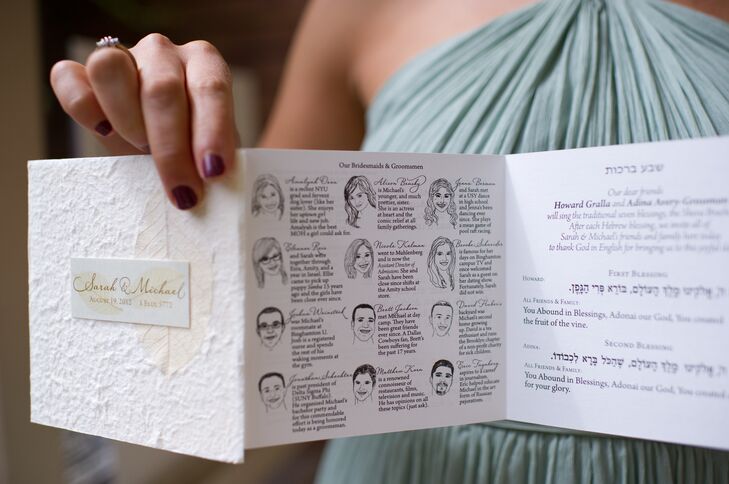 Sarah & Michael
August 19, 2012
Our Bridesmaids & Groomsmen
Amalyah Oren
is a recent NYU
grad and fervent
dog lover (like
her sister). She
enjoys her
uptown girl
life and new job.
Amalyah is the best
MOH a girl could ask for.
Alison
is Michael's
younger, and much
prettier, sister.
She is an actress
at heart and the
comic relief at all
family gatherings.
Jenna
and Sarah met
at USY dances
in high school
and Jenna's been
dancing ever
since. She plays
a mean game
of pool raft racing.
and Sarah were
together through
Ezra, Amity, and a
year in Israel. Ellie
came to pick up
puppy Sasha 15 years
ago and the girls
have been close ever since.
Nicole
went to Muhlenberg,
and is now the
Assistant Director of
Admissions. She and
Sarah have been
close since shifts at
the Amity school
store.
Brooke Schneider
is famous for her
days on
Binghamton
campus TV and
once welcomed
Sarah as a guest on
her dating show.
Fortunately, Sarah
did not win.
Joshua
was Michael's
roommate at
Binghamton U.
Josh is a registered
nurse and spends
the rest of his
waking moments at
the gym.
Brett Jackson
met Michael at day
camp. They have
been great friends
ever since. A Dallas
Cowboys fan, Brett's
been suffering for
the past 17 years.
David
backyard was
Michael's second
home growing
up. David is a
enthusiast and runs
the Brooklyn chapter
of a non-profit charity
for sick children.
Jonathan
is past president of
Delta Sigma Phi
(SUNY Buffalo).
He organized Michael's
bachelor party and
for this commendable
effort is being honored
today as a groomsman.
Matthew
is a renowned
connoisseur of
restaurants, films,
television and music.
He has opinions on all
these topics (just ask).
Eric
aspires to a career
in journalism.
Eric helped educate
Michael in the art
form of Russian
pejoratives.
שבע ברכות
Our dear friends
Howard Gralla and Adina Avery-Grossman
will sing the traditional seven blessings, the Sheva
After each Hebrew blessing, we invite all of
Sarah & Michael's friends and family here today
to thank God in English for bringing us to this joyful
First Blessing
Howard:
אלהינו מלך העולם, בורא פרי הגפן.
All Friends & Family:
You Abound in Blessings, Adonai our God, You created
the fruit of the vine.
Second Blessing
Adina:
אלהינו מלך העולם, שהכל ברא לכבודו.
All Friends & Family:
You Abound in Blessings, Adonai our God, You created
for your glory.